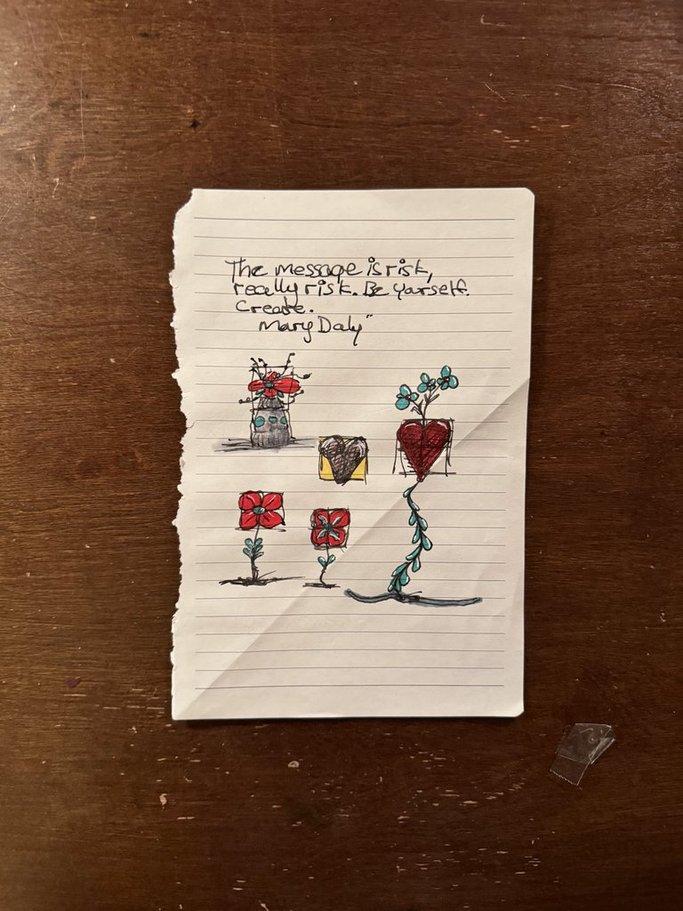 The message is risk,
really risk. Be yourself.
Create.
Mary Daly"